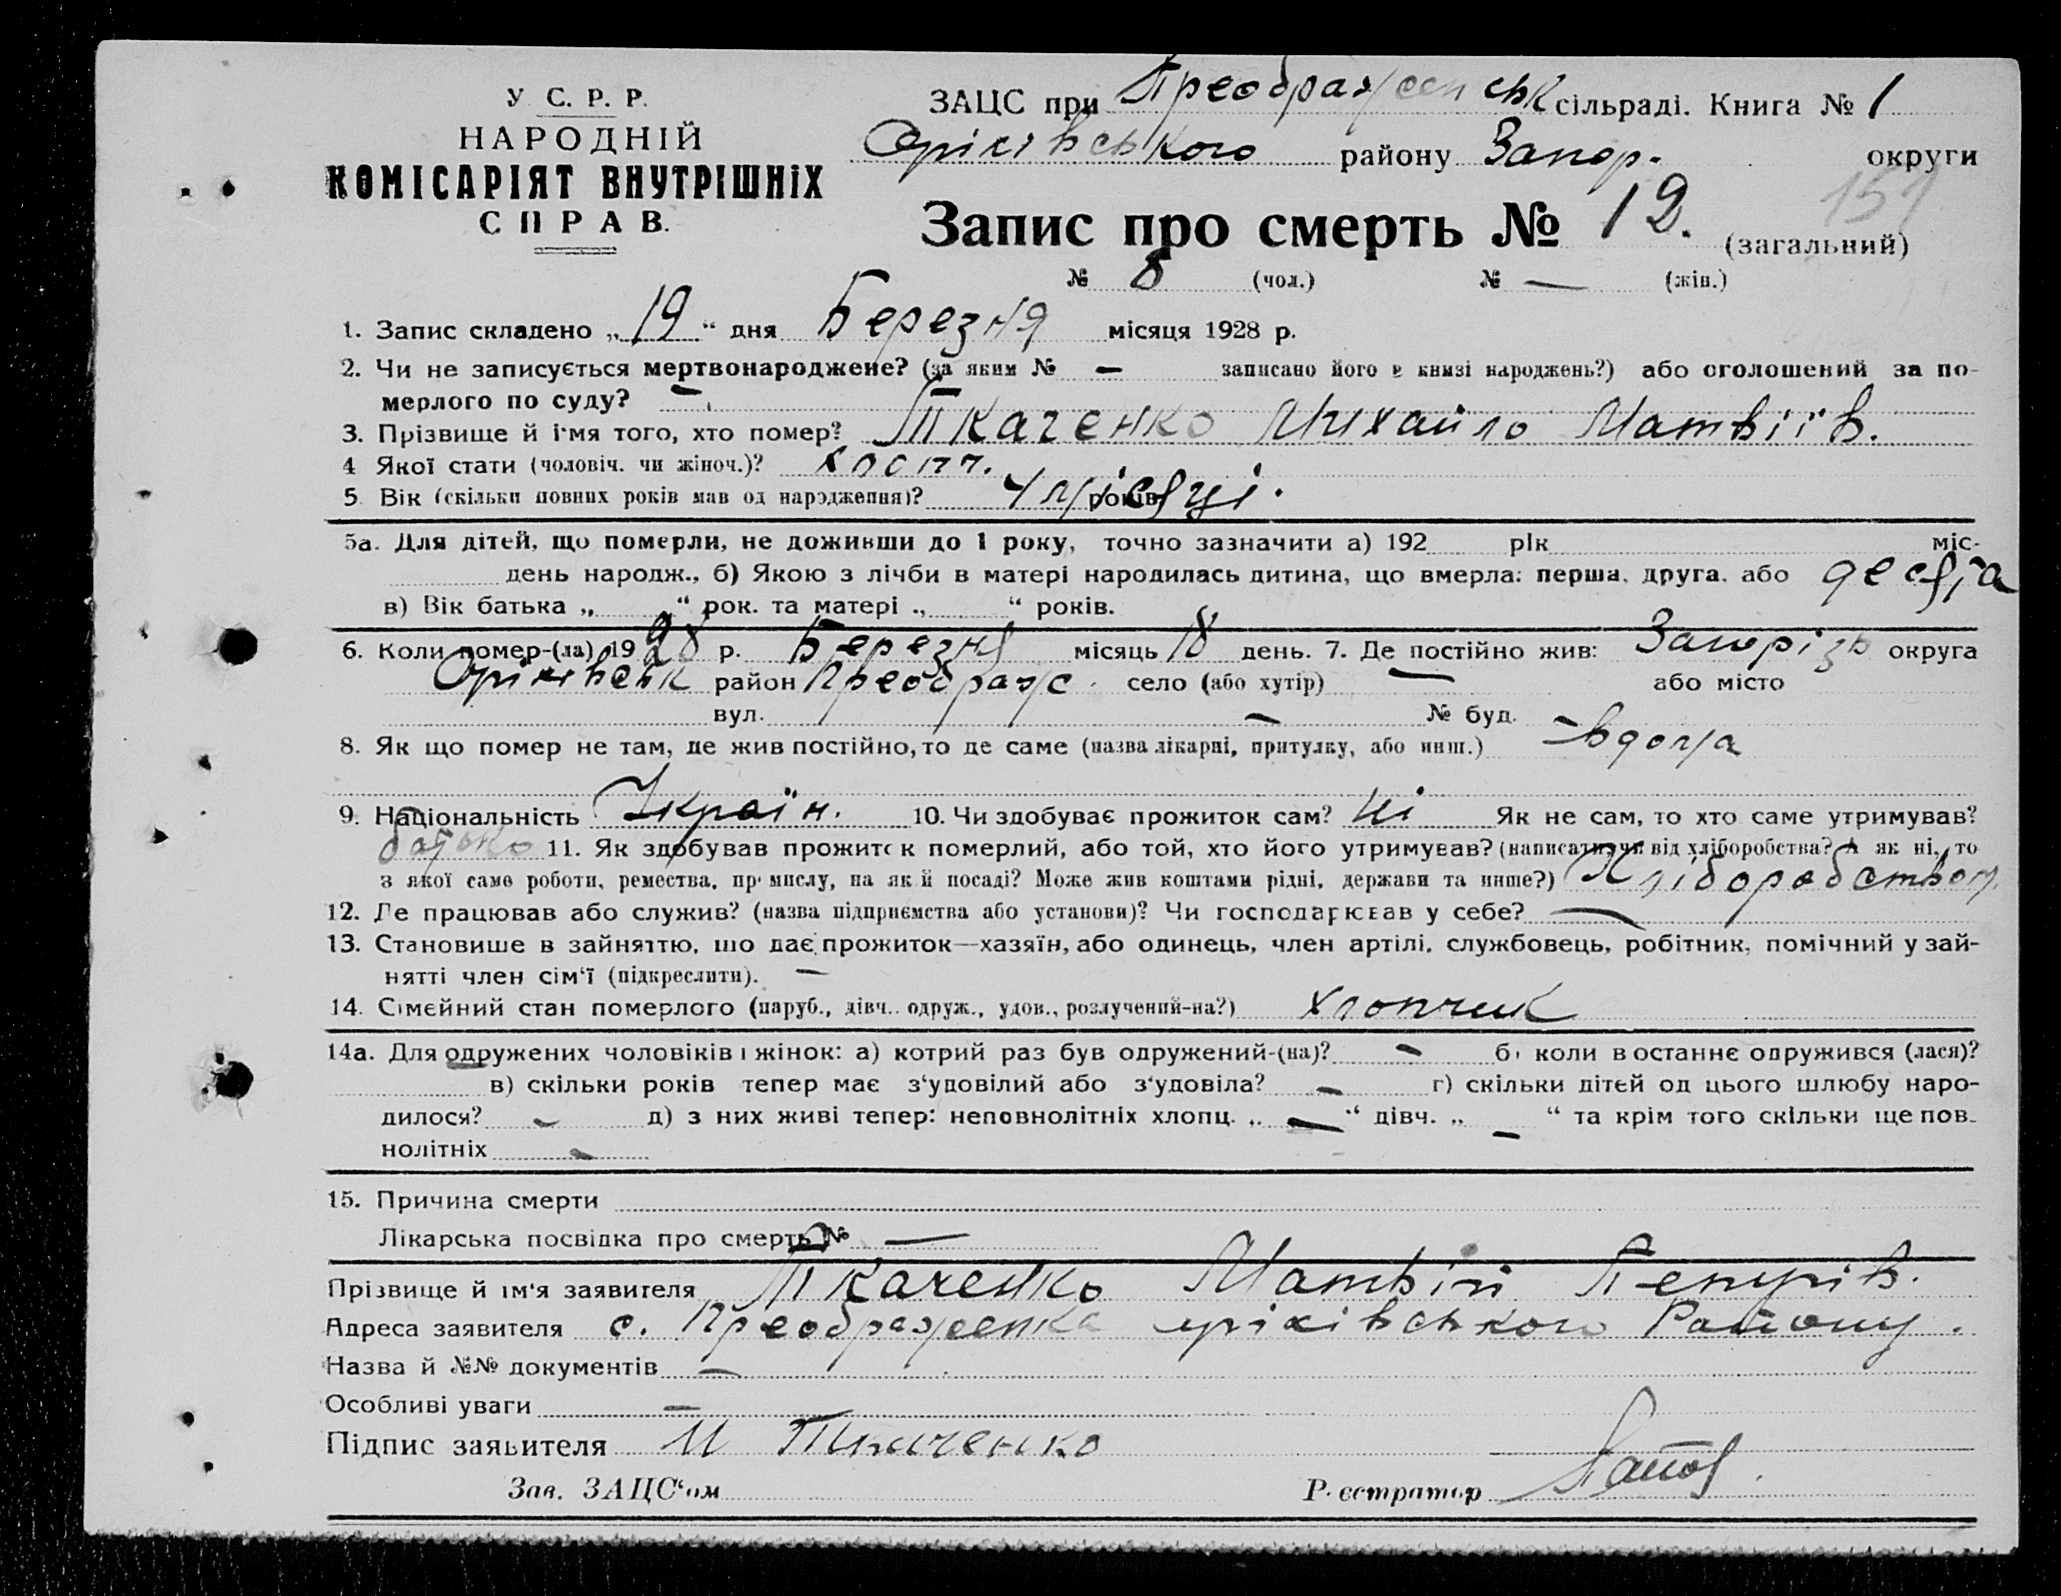 У. С. Р. Р.
НАРОДНІЙ
КОМІСАРІЯТ ВНУТРІШНІХ
СПРАВ.
ЗАЦС при Преображенськ сільраді. Книга № 1
Оріхівського району Запор. округи
151
Запис про смерть № 12. (загальний)
№ 8 (чол.) № — (жін.)
1. Запис складено „19“ дня Березня місяця 1928 р.
2. Чи не записується мертвонароджене? (за яким № — записано його в книзі народжень?) або оголошений за по-
мерлого по суду? —
3. Прізвище й імя того, хто помер? Ткаченко Михайло Матвіїв.
4 Якої стати (чоловіч. чи жіноч.)? хлопч.
5. Вік (скільки повних років мав од народження)? 4 місяці. років
5а. Для дітей, що померли, не доживши до 1 року, точно зазначити а) 192 рік міс-
день народж., б) Якою з лічби в матері народилась дитина, що вмерла: перша, друга, або десята
в) Вік батька „ “ рок. та матері „ “ років.
6. Коли помер-(ла) 1928 р. Березня місяць 18 день. 7. Де постійно жив: Запорізь округа
Оріхівськ район Преображ. село (або хутір) — або місто
вул. — № буд. —
8. Як що помер не там, де жив постійно, то де саме (назва лікарні, притулку, або инш.) вдома
9. Національність Україн. 10. Чи здобуває прожиток сам? Ні Як не сам, то хто саме утримував?
батько 11. Як здобував прожиток померлий, або той, хто його утримував? (написати, чи від хліборобства? А як ні, то
з якої саме роботи, ремества, промислу, на якій посаді? Може жив коштами рідні, держави та инше?) Хліборобством
12. Де працював або служив? (назва підприємства або установи)? Чи господарював у себе? —
13. Становище в зайняттю, що дає прожиток—хазяїн, або одинець, член артілі, службовець, робітник, помічний у зай-
нятті член сім‘ї (підкреслити). —
14. Сімейний стан померлого (паруб., дівч., одруж., удов., розлучений-на?) хлопчик
14а. Для одружених чоловіків і жінок: а) котрий раз був одружений-(на)? — б) коли востаннє одружився (лася)?
в) скільки років тепер має з‘удовілий або з‘удовіла? — г) скільки дітей од цього шлюбу наро-
дилося? — д) з них живі тепер: неповнолітніх хлопц. „ — “ дівч. „ — “ та крім того скільки ще пов-
нолітніх —
15. Причина смерти
Лікарська посвідка про смерть № —
Прізвище й ім‘я заявителя Ткаченко Матвій Петрів.
Адреса заявителя с. Преображенка оріхівського Району.
Назва й №№ документів —
Особливі уваги —
Підпис заявителя М Ткаченко
Зав. ЗАЦС‘ом Реєстратор